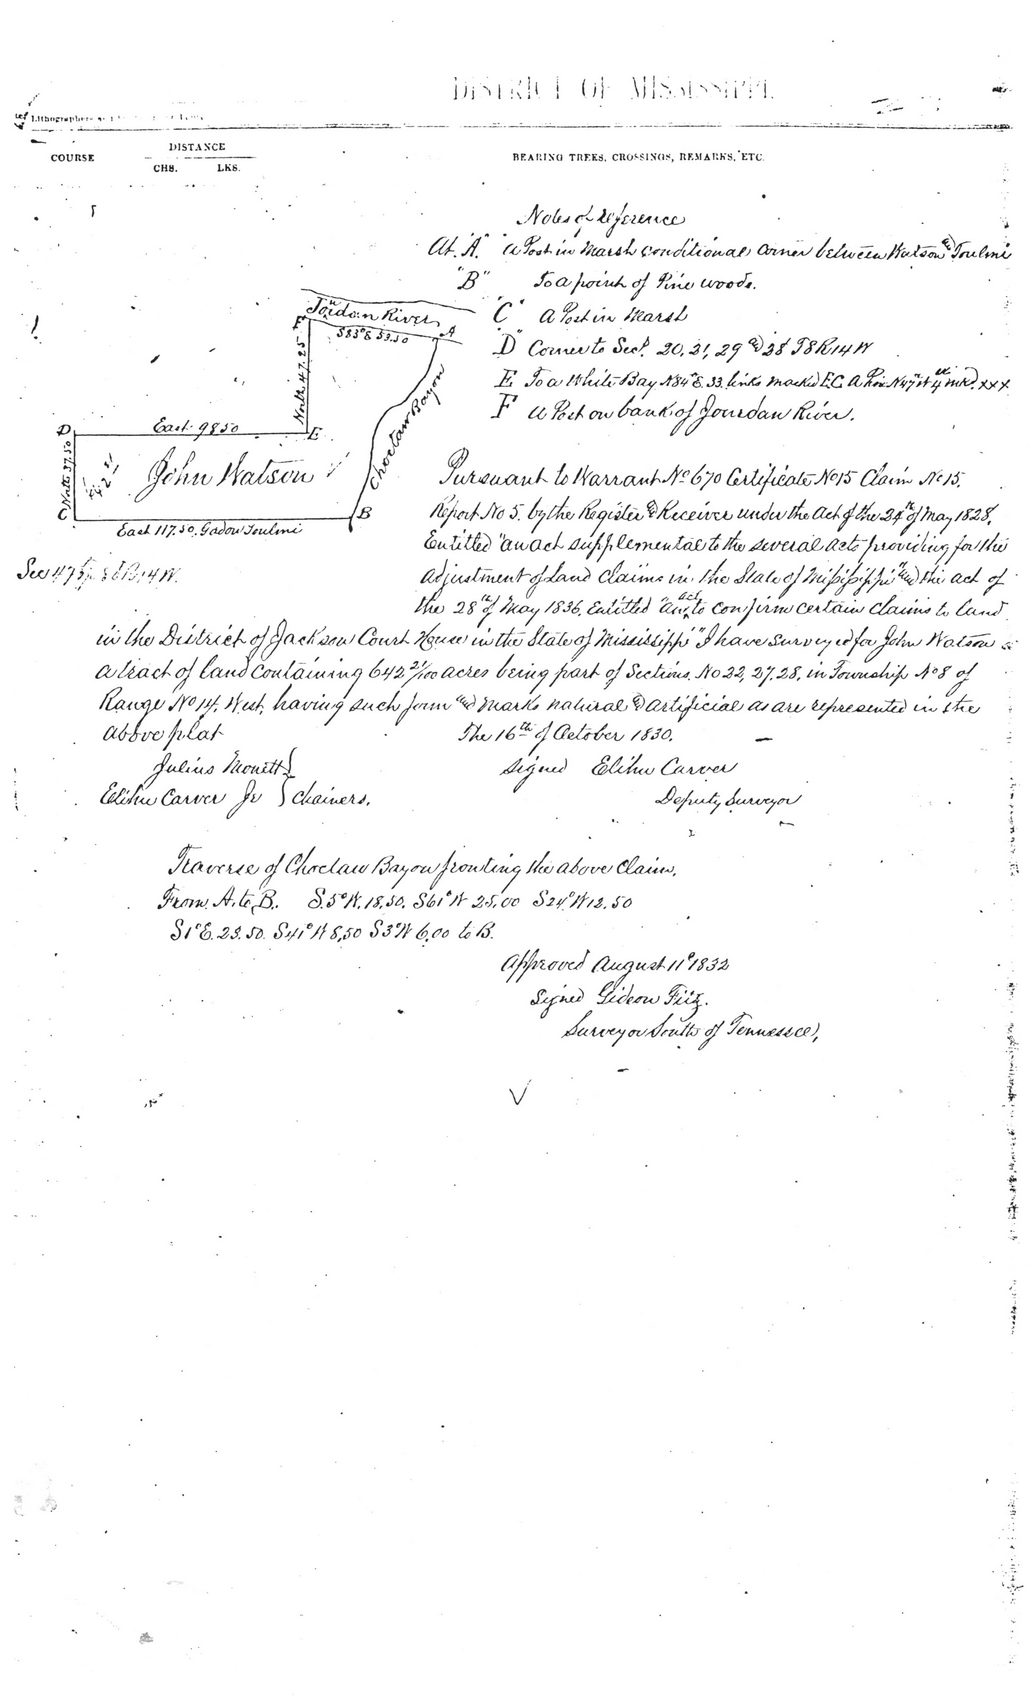 DISTRICT OF MISSISSIPPI.
Lithographers
COURSE
DISTANCE
CHS. LKS.
BEARING TREES, CROSSINGS, REMARKS, ETC.
Notes of reference
At "A" a Post in Marsh conditional corner between Watson & Toulmi
"B" To a point of Pine woods.
"C" A Post in Marsh
"D" Corner to Secs. 20, 21, 29 & 28 T8 R14W
E To a White Bay N84°E. 33. links marked E.C. A Pine N47°W 4 mkd. xxx
F A Post on bank of Jourdan River.
Jourdan River
F
S85°E 53.50
A
North 47.25
Choctaw Bayou
D
East 98 50
E
North 37.50
John Watson
C
B
East 117.50. Gadow Toulmi
Sec 47 Tp 8 R 14 W.
Pursuant to Warrant No 670 Certificate No 15 Claim No 15.
Report No 5. by the Register & Receiver under the Act of the 24th of May 1828,
Entitled "an act supplemental to the several acts providing for the
adjustment of Land Claims in the State of Mississippi" and the act of
the 28th of May 1836, Entitled "an act to confirm certain claims to land
in the District of Jackson Court House in the State of Mississippi" I have surveyed for John Watson
a tract of land containing 642 2/100 acres being part of Sections. No 22, 27, 28, in Township No 8 of
Range No 14, West, having such form and marks natural & artificial as are represented in the
above plat The 16th of October 1830.
Julius Monett
Signed Elihu Carver
Elihu Carver Jr } Chainers.
Deputy Surveyor
Traverse of Choctaw Bayou fronting the above Claim.
From A. to B. S.5°W. 18,50. S61°W 25,00 S24°W 12,50
S1°E. 23.50. S41°W 8,50 S3°W 6,00 to B.
Approved August 11th 1832
Signed Gideon Fitz.
Surveyor South of Tennessee,